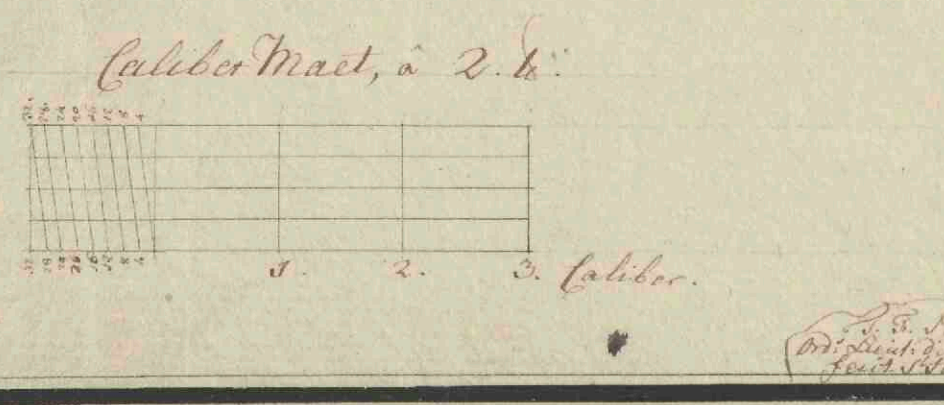 Caliber Maet, â 2. ℔.
32. 28. 24 20 16 12 8 4
32 28 24 20 16 12 8 4
1. 2. 3. Caliber.